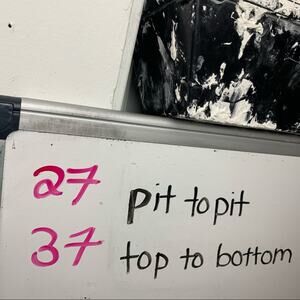 27 pit to pit
37 top to bottom